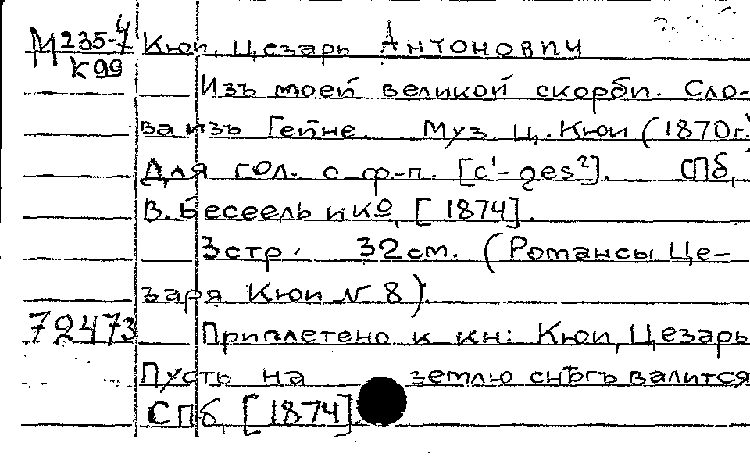 М235-4 Кюи, Цезарь Антонович
К99
Изъ моей великой скорби. Сло-
ва изъ Гейне. Муз. Ц. Кюи (1870г.)
Для гол. с ф-п. [c¹- ges²]. СПб,
В. Бессель и Ко, [1874].
3 стр. 32 см. (Романсы Це-
заря Кюи № 8).
72473 Приплетено к кн: Кюи, Цезарь
Пусть на землю снѣгъ валится
СПб, [1874]